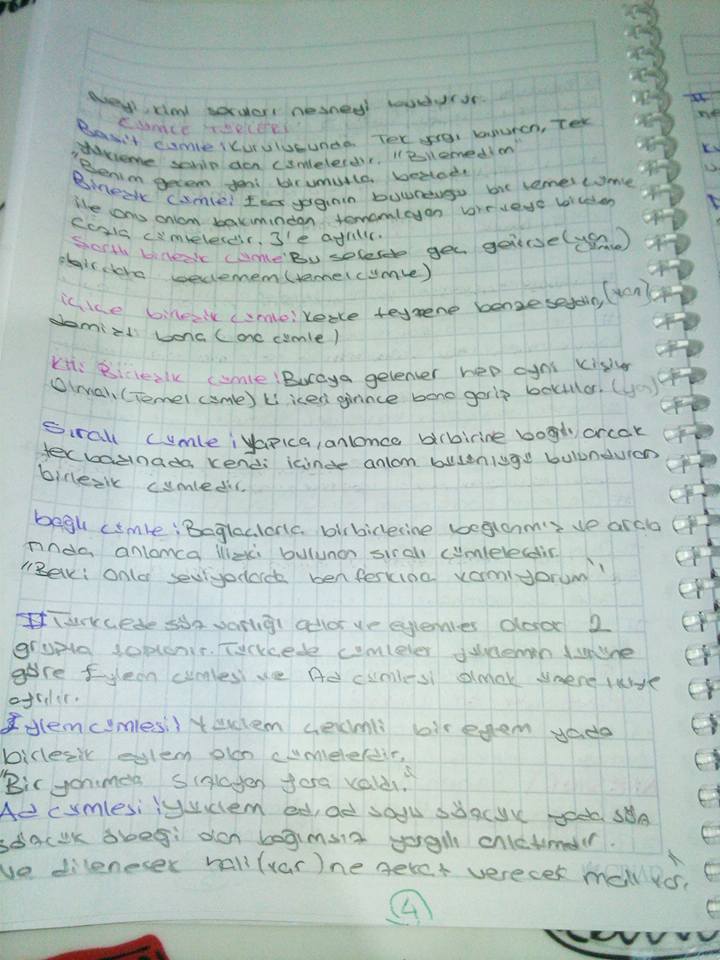 Neyi, kimi soruları nesneyi buldurur.
CÜMLE TÜRLERİ
Basit cümle: Kuruluşunda Tek yargı bulunan, Tek
yükleme sahip olan cümlelerdir. "Bilemedim"
"Benim gecem yeni bir umutla başladı
Birleşik Cümle: Esas yargının bulunduğu bir temel cümle
ile onu anlam bakımından tamamlayan bir veya birden
fazla cümlelerdir. 3'e ayrılır.
Şartlı birleşik cümle: Bu seferde geç gelirse (yan cümle)
bir daha beklemem (temel cümle)
içiçe birleşik cümle: keşke teyzene benzeseydin, (yan)
demişti bana (ana cümle)
Ki'li Birleşik cümle: Buraya gelenler hep aynı kişiler
Olmalı, (Temel cümle) ki içeri girince bana garip baktılar. (yan)
Sıralı cümle: Yapıca, anlamca birbirine bağlı, ancak
tek başınada kendi içinde anlam bütünlüğü bulunduran
birleşik cümledir.
bağlı cümle: Bağlaçlarla birbirlerine bağlanmış ve arala
rında anlamca ilişki bulunan sıralı cümlelerdir.
"Belki onlar seviyorlarda ben farkına varmıyorum"
Türkçede söz varlığı adlar ve eylemler olarak 2
grupta toplanır. Türkçede cümleler yüklemin türüne
göre Eylem cümlesi ve Ad cümlesi olmak üzere ikiye
ayrılır.
Eylem cümlesi: Yüklem çekimli bir eylem yada
birleşik eylem olan cümlelerdir.
"Bir yanımda sızlayan yara kaldı."
Ad cümlesi: Yüklem ad, ad soylu sözcük yada söz
sözcük öbeği olan bağımsız yargılı anlatımdır.
ve dilenecek hali (var) ne zekat verecek malı var.
4